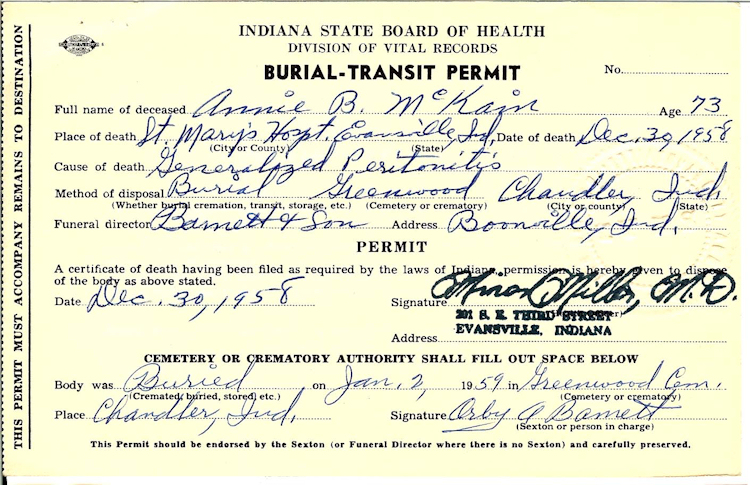 INDIANA STATE BOARD OF HEALTH
DIVISION OF VITAL RECORDS
BURIAL-TRANSIT PERMIT
No.
Full name of deceased Annie B. McKain Age 73
Place of death St. Mary's Hospt. Evansville, Ind. Date of death Dec. 30, 1958
(City or County) (State)
Cause of death Generalized Peritonitis
Method of disposal Burial Greenwood Chandler, Ind.
(Whether burial cremation, transit, storage, etc.) (Cemetery or crematory) (City or county) (State)
Funeral director Barnett & Son Address Boonville, Ind.
PERMIT
A certificate of death having been filed as required by the laws of Indiana, permission is hereby given to dispose
of the body as above stated.
Date Dec. 30, 1958 Signature Minor Miller, M.D.
201 S. E. THIRD STREET
Address EVANSVILLE, INDIANA
CEMETERY OR CREMATORY AUTHORITY SHALL FILL OUT SPACE BELOW
Body was Buried on Jan. 2, 1959 in Greenwood Cem.
(Cremated, buried, stored, etc.) (Cemetery or crematory)
Place Chandler, Ind. Signature Orby A Barnett
(Sexton or person in charge)
This Permit should be endorsed by the Sexton (or Funeral Director where there is no Sexton) and carefully preserved.
THIS PERMIT MUST ACCOMPANY REMAINS TO DESTINATION